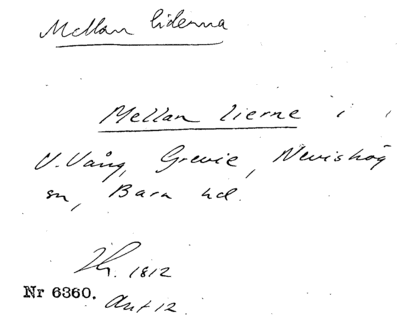 Mellan liderna
Mellan lierne i
V. Vång, Grevie, Nevishög
sn, Bara hd.
Lh. 1812
Nr 6360. Akt 12.